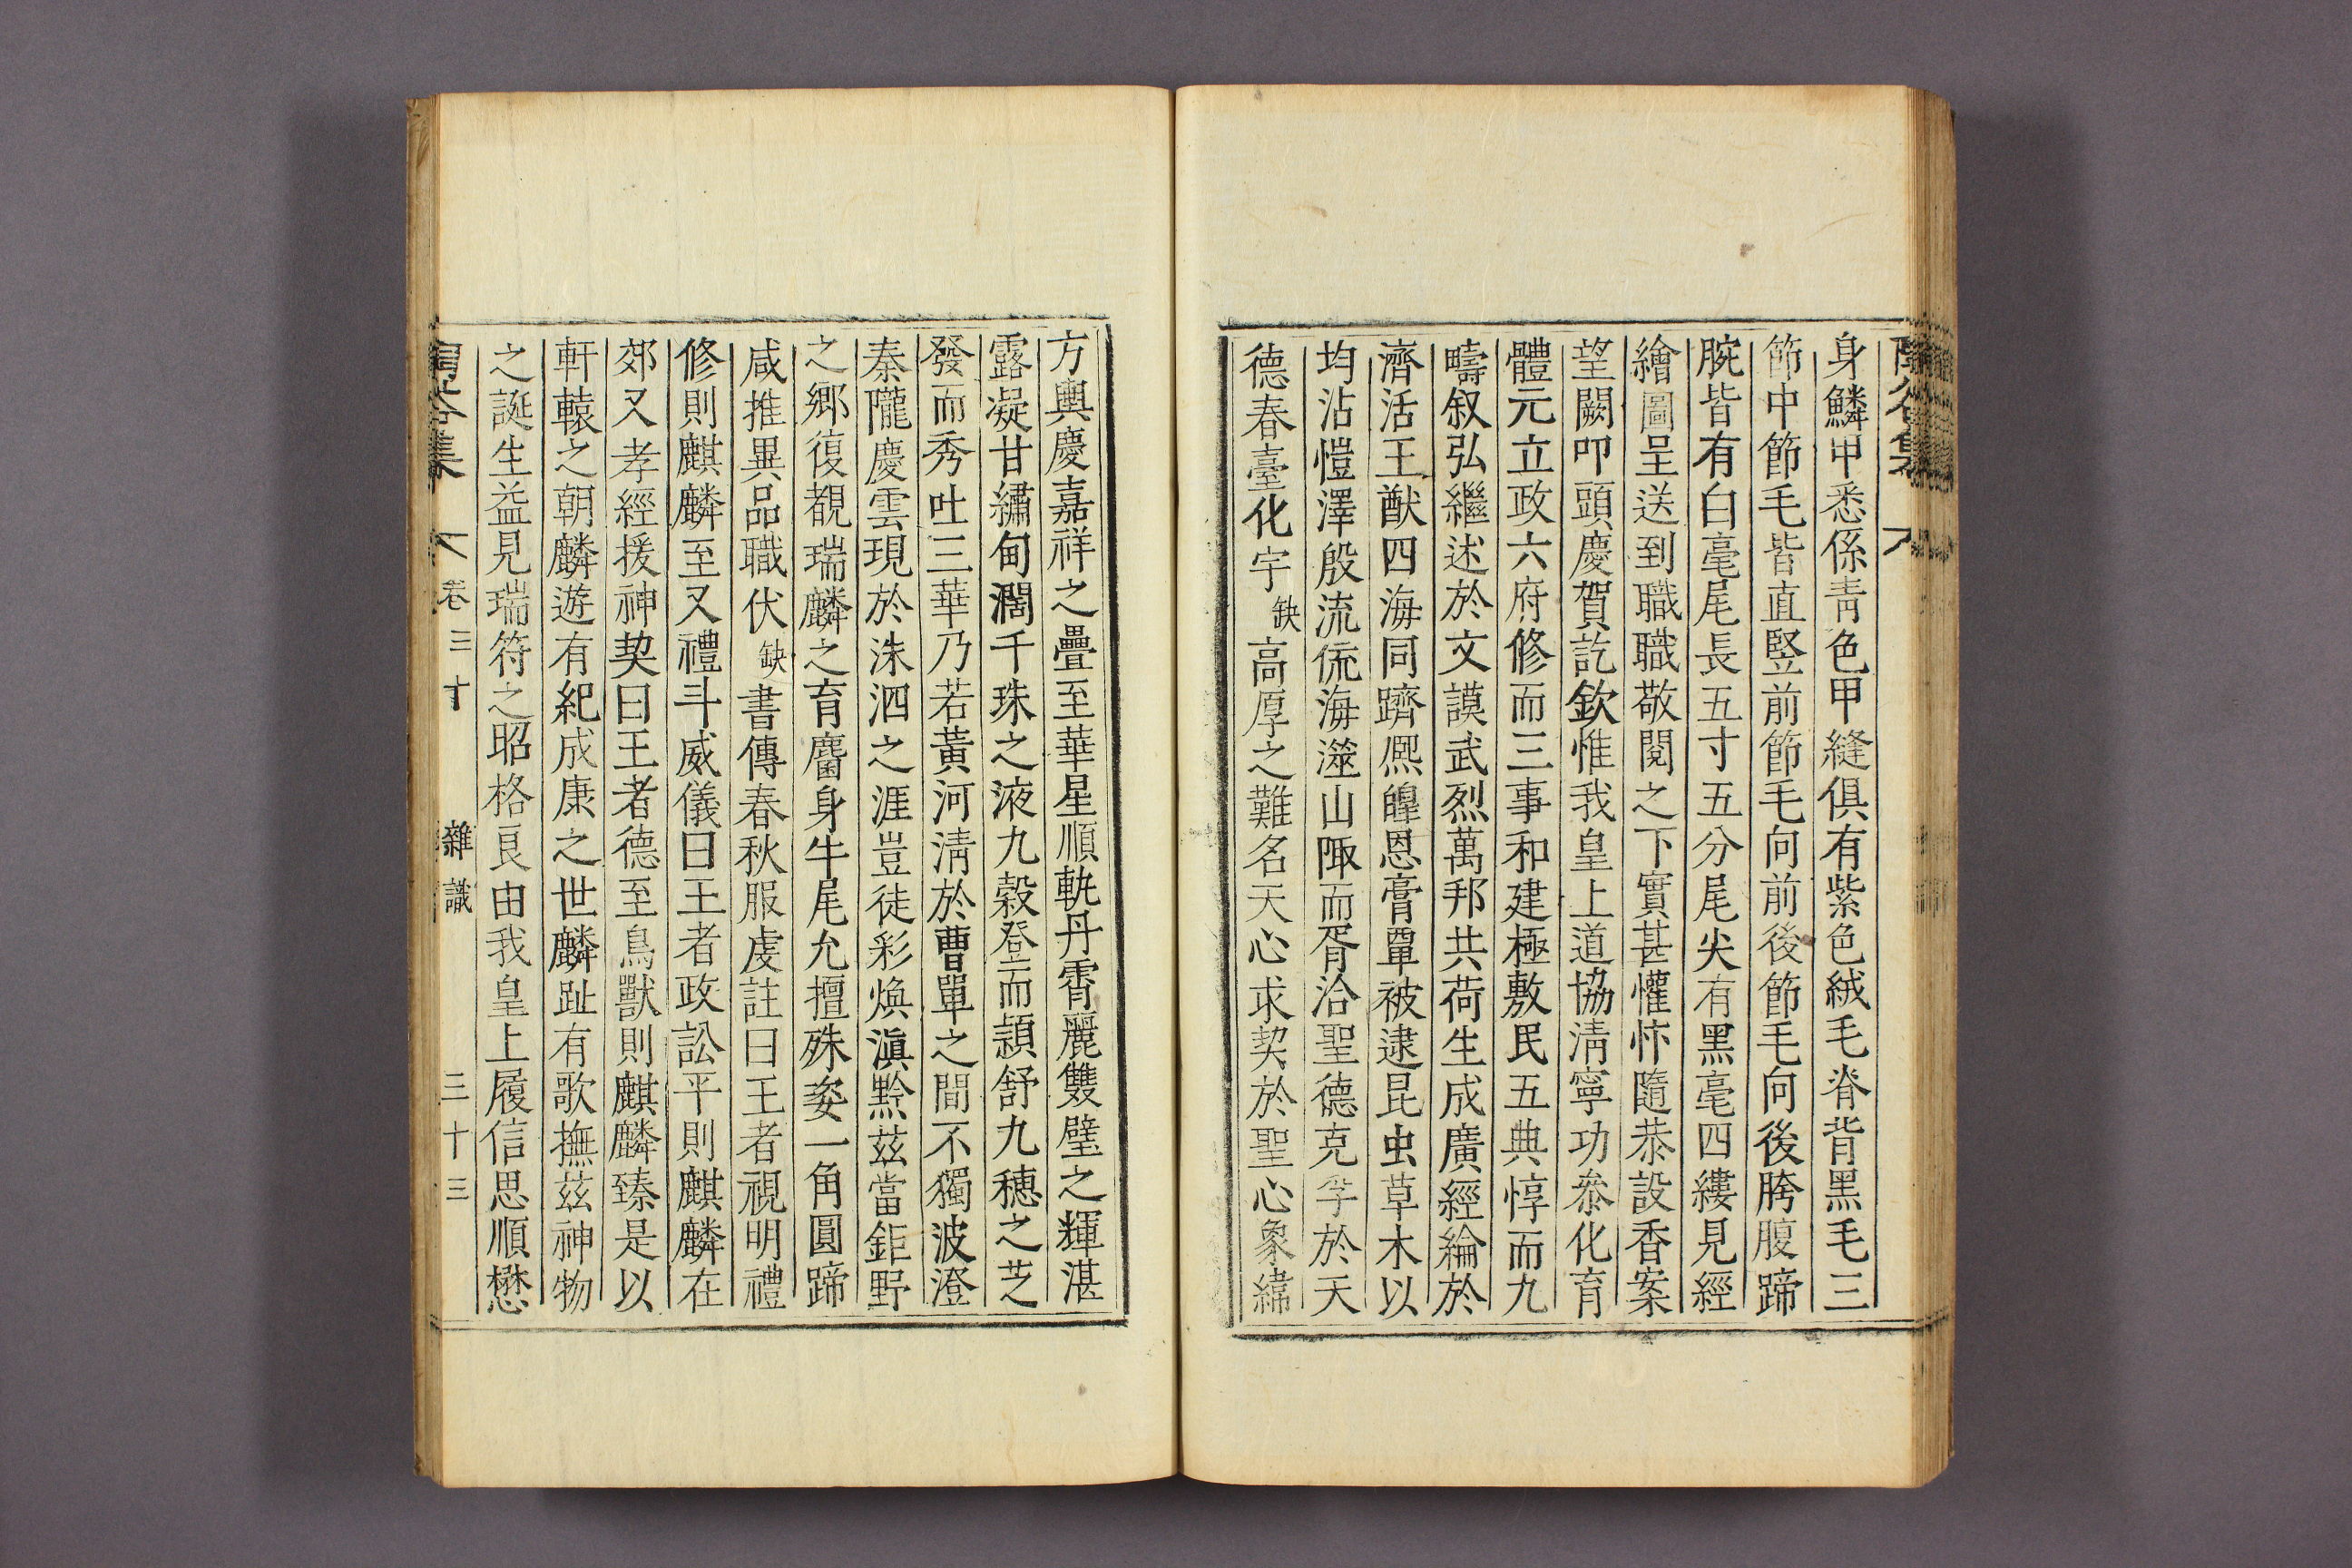 身鱗甲悉係青色甲縫俱有紫色絨毛脊背黑毛三
節中節毛皆直竪前節毛向前後節毛向後胯腹蹄
腕皆有白毫尾長五寸五分尾尖有黑毫四縷見經
繪圖呈送到職職敬閱之下實甚懽忭隨恭設香案
望闕叩頭慶賀訖欽惟我皇上道協清寧功叅化育
體元立政六府修而三事和建極敷民五典惇而九
疇叙弘繼述於文謨武烈萬邦共荷生成廣經綸於
濟活王猷四海同躋熈皥恩膏覃被逮昆虫草木以
均沾愷澤殷流㳅海澨山陬而胥洽聖德克孚於天
德春臺化宇缺高厚之難名天心求契於聖心象緯
方輿慶嘉祥之疊至華星順軌丹霄麗雙璧之輝湛
露凝甘繡甸濶千珠之液九穀登而頴舒九穗之芝
發而秀吐三華乃若黃河清於曹單之間不獨波澄
秦隴慶雲現於洙泗之涯豈徒彩煥滇黔茲當鉅野
之鄉復覩瑞麟之育麕身牛尾允擅殊姿一角圓蹄
咸推異品職伏缺書傳春秋服虔註曰王者視明禮
修則麒麟至又禮斗威儀曰王者政訟平則麒麟在
郊又孝經援神契曰王者德至鳥獸則麒麟臻是以
軒轅之朝麟遊有紀成康之世麟趾有歌撫茲神物
之誕生益見瑞符之昭格良由我皇上履信思順懋
集 卷三十 雜識 三十三